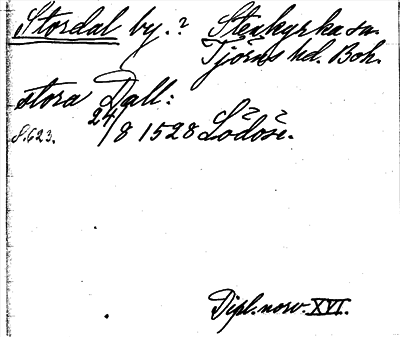 Stordal by.? Stenkyrka sn.
Tjörns hd. Boh.
stora Dall:
S. 623. 24/8 1528 Lödöse.
Dipl. norv. XVI.